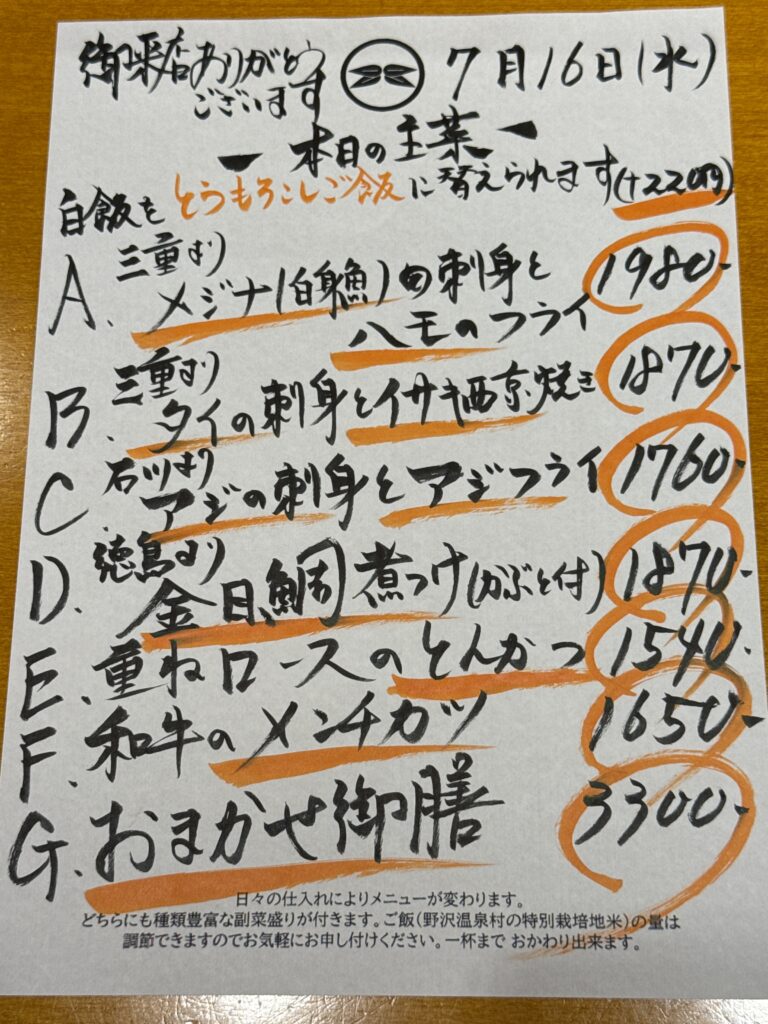 御来店ありがとうございます
7月16日(水)
本日の主菜
白飯をとうもろこしご飯に替えられます(+220円)
三重より
A. メジナ(白身魚)の刺身と
ハモのフライ 1980-
三重より
B. タイの刺身とイサキ西京焼き 1870-
石川より
C. アジの刺身とアジフライ 1760-
徳島より
D. 金目鯛煮つけ(かぶと付) 1870-
E. 重ねロースのとんかつ 1540-
F. 和牛のメンチカツ 1650-
G. おまかせ御膳 3300-
日々の仕入れによりメニューが変わります。
どちらにも種類豊富な副菜盛りが付きます。ご飯(野沢温泉村の特別栽培地米)の量は
調節できますのでお気軽にお申し付けください。一杯まで おかわり出来ます。